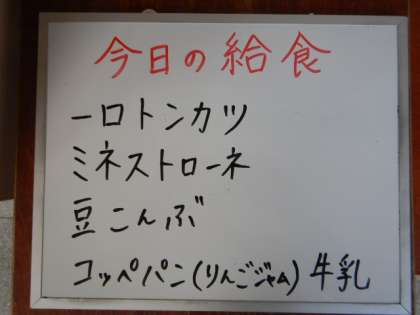 今日の給食
一口トンカツ
ミネストローネ
豆こんぶ
コッペパン(りんごジャム) 牛乳